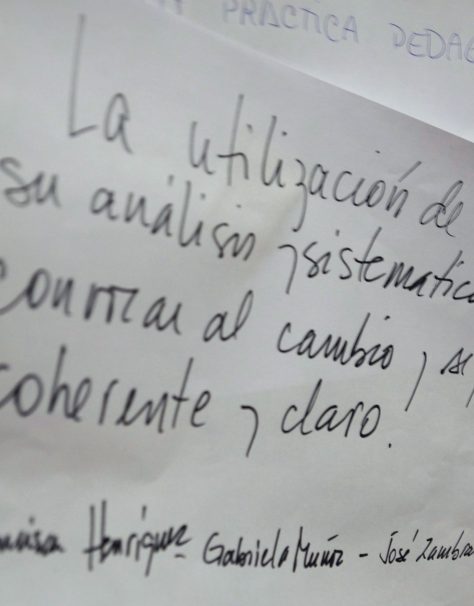 PRÁCTICA
La utilización de
su análisis y sistematic
al cambio, y
coherente y claro!
Henríquez Gabriela Muñoz - José Zambra